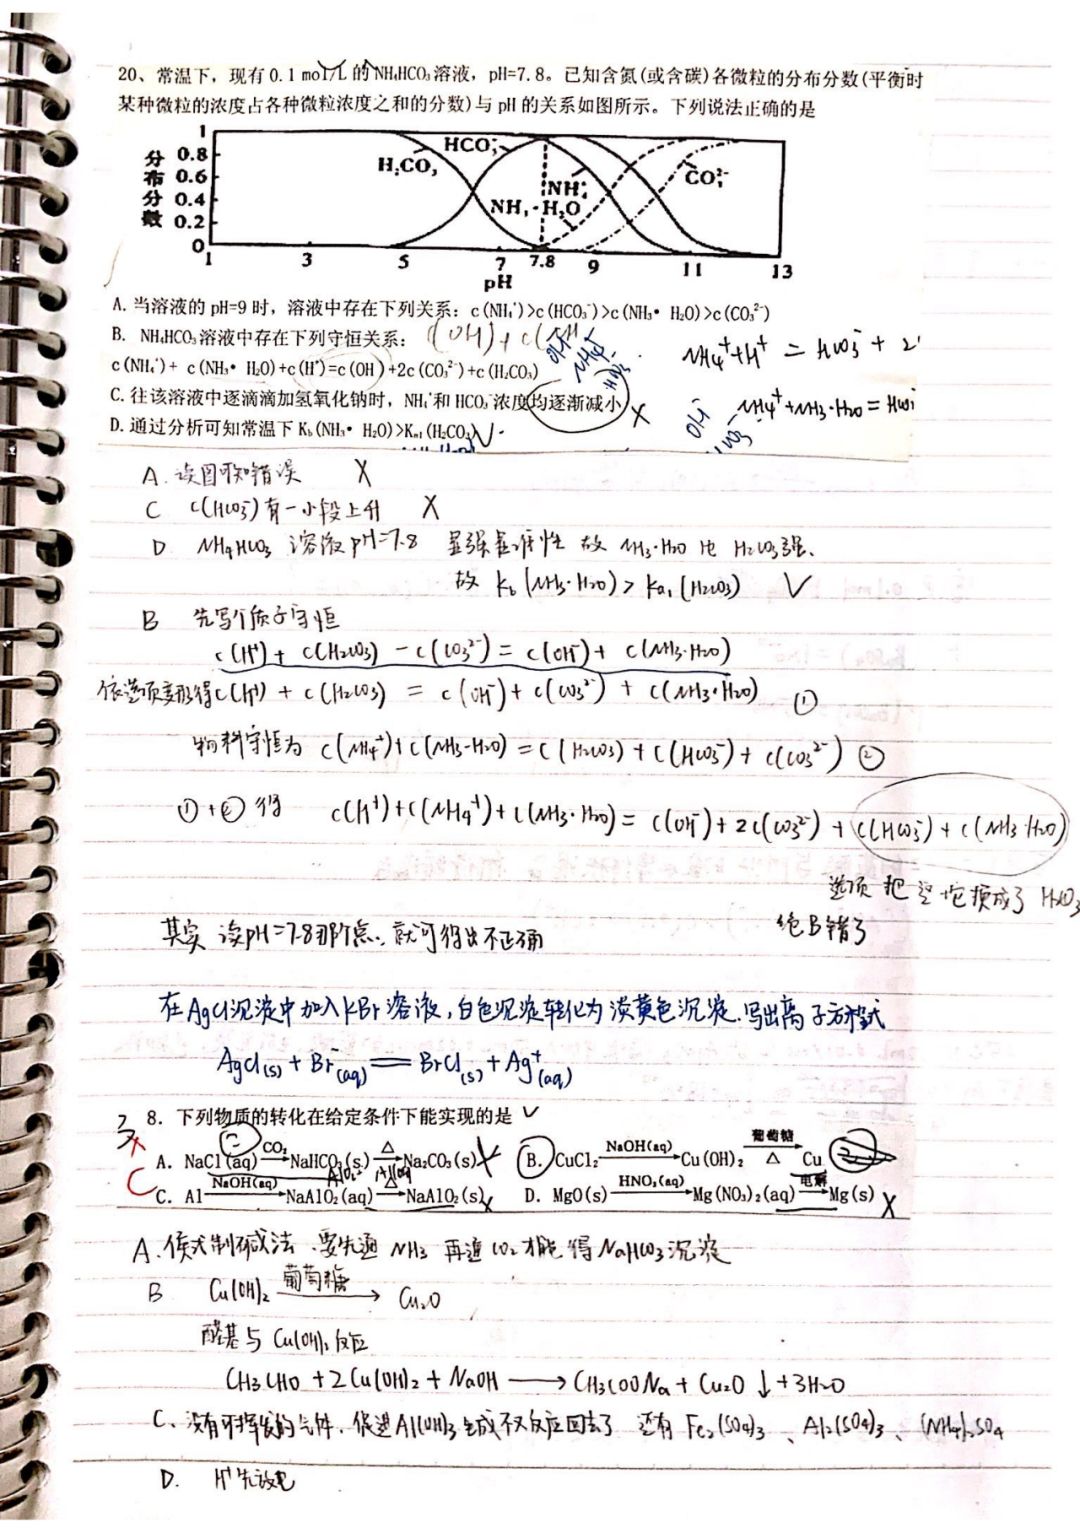 20、常温下，现有 0.1 mol/L 的 NH₄HCO₃ 溶液，pH=7.8。已知含氮(或含碳)各微粒的分布分数(平衡时
某种微粒的浓度占各种微粒浓度之和的分数)与 pH 的关系如图所示。下列说法正确的是
分布分数
1
0.8
0.6
0.4
0.2
0
H₂CO₃
HCO₃⁻
NH₄⁺
NH₃·H₂O
CO₃²⁻
1 3 5 7 7.8 9 11 13
pH
A. 当溶液的 pH=9 时，溶液中存在下列关系：c(NH₄⁺)>c(HCO₃⁻)>c(NH₃•H₂O)>c(CO₃²⁻)
B. NH₄HCO₃ 溶液中存在下列守恒关系：
c(NH₄⁺)+ c(NH₃•H₂O)+c(H⁺)=c(OH⁻)+2c(CO₃²⁻)+c(H₂CO₃)
NH₄⁺+H⁺ = HCO₃⁻ + 2
C. 往该溶液中逐滴滴加氢氧化钠时，NH₄⁺和 HCO₃⁻浓度均逐渐减小 X
NH₄⁺+NH₃·H₂O = HCO₃⁻
D. 通过分析可知常温下 K_b(NH₃•H₂O)>K_a1(H₂CO₃) √
A. 读图可知错误 X
C c(HCO₃⁻)有一小段上升 X
D. NH₄HCO₃ 溶液 pH=7.8 故 NH₃·H₂O 比 H₂CO₃强、
故 K_b(NH₃·H₂O) > K_a1(H₂CO₃) √
B 先写个质子守恒
c(H⁺)+ c(H₂CO₃) - c(CO₃²⁻) = c(OH⁻)+ c(NH₃·H₂O)
依选项变形得c(H⁺) + c(H₂CO₃) = c(OH⁻)+ c(CO₃²⁻) + c(NH₃·H₂O) ①
物料守恒为 c(NH₄⁺)+c(NH₃·H₂O) = c(H₂CO₃) + c(HCO₃⁻) + c(CO₃²⁻) ②
①+②得 c(H⁺)+c(NH₄⁺)+c(NH₃·H₂O) = c(OH⁻)+2c(CO₃²⁻)+c(HCO₃⁻)+c(NH₃·H₂O)
选项把这坨换成了 H₂CO₃
B错了
其实 读pH=7.8那个点，就可得出不正确
在AgCl沉淀中加入KBr溶液，白色沉淀转化为淡黄色沉淀.写出离子方程式
AgCl(s) + Br⁻(aq) = BrCl(s) + Ag⁺(aq)
8. 下列物质的转化在给定条件下能实现的是 √
A. NaCl(aq) —CO₂→ NaHCO₃(s) —△→ Na₂CO₃(s) X
B. CuCl₂ —NaOH(aq)→ Cu(OH)₂ —葡萄糖 △→ Cu
C
C. Al —NaOH(aq)→ NaAlO₂(aq) —△→ NaAlO₂(s) X
D. MgO(s) —HNO₃(aq)→ Mg(NO₃)₂(aq) —电解→ Mg(s) X
A. 侯式制碱法.要先通 NH₃ 再通 CO₂才能得 NaHCO₃沉淀
B Cu(OH)₂ —葡萄糖→ Cu₂O
醛基与 Cu(OH)₂ 反应
CH₃CHO + 2Cu(OH)₂ + NaOH ⟶ CH₃COONa + Cu₂O↓+3H₂O
C、没有可挥发的气体，促进Al(OH)₃生成不又反应回去了 还有 Fe₂(SO₄)₃、Al₂(SO₄)₃、(NH₄)₂SO₄
D. H⁺先放电